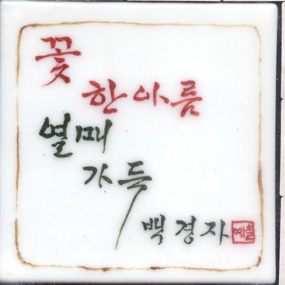 꽃
한아름
열매
가득
백경자
예을